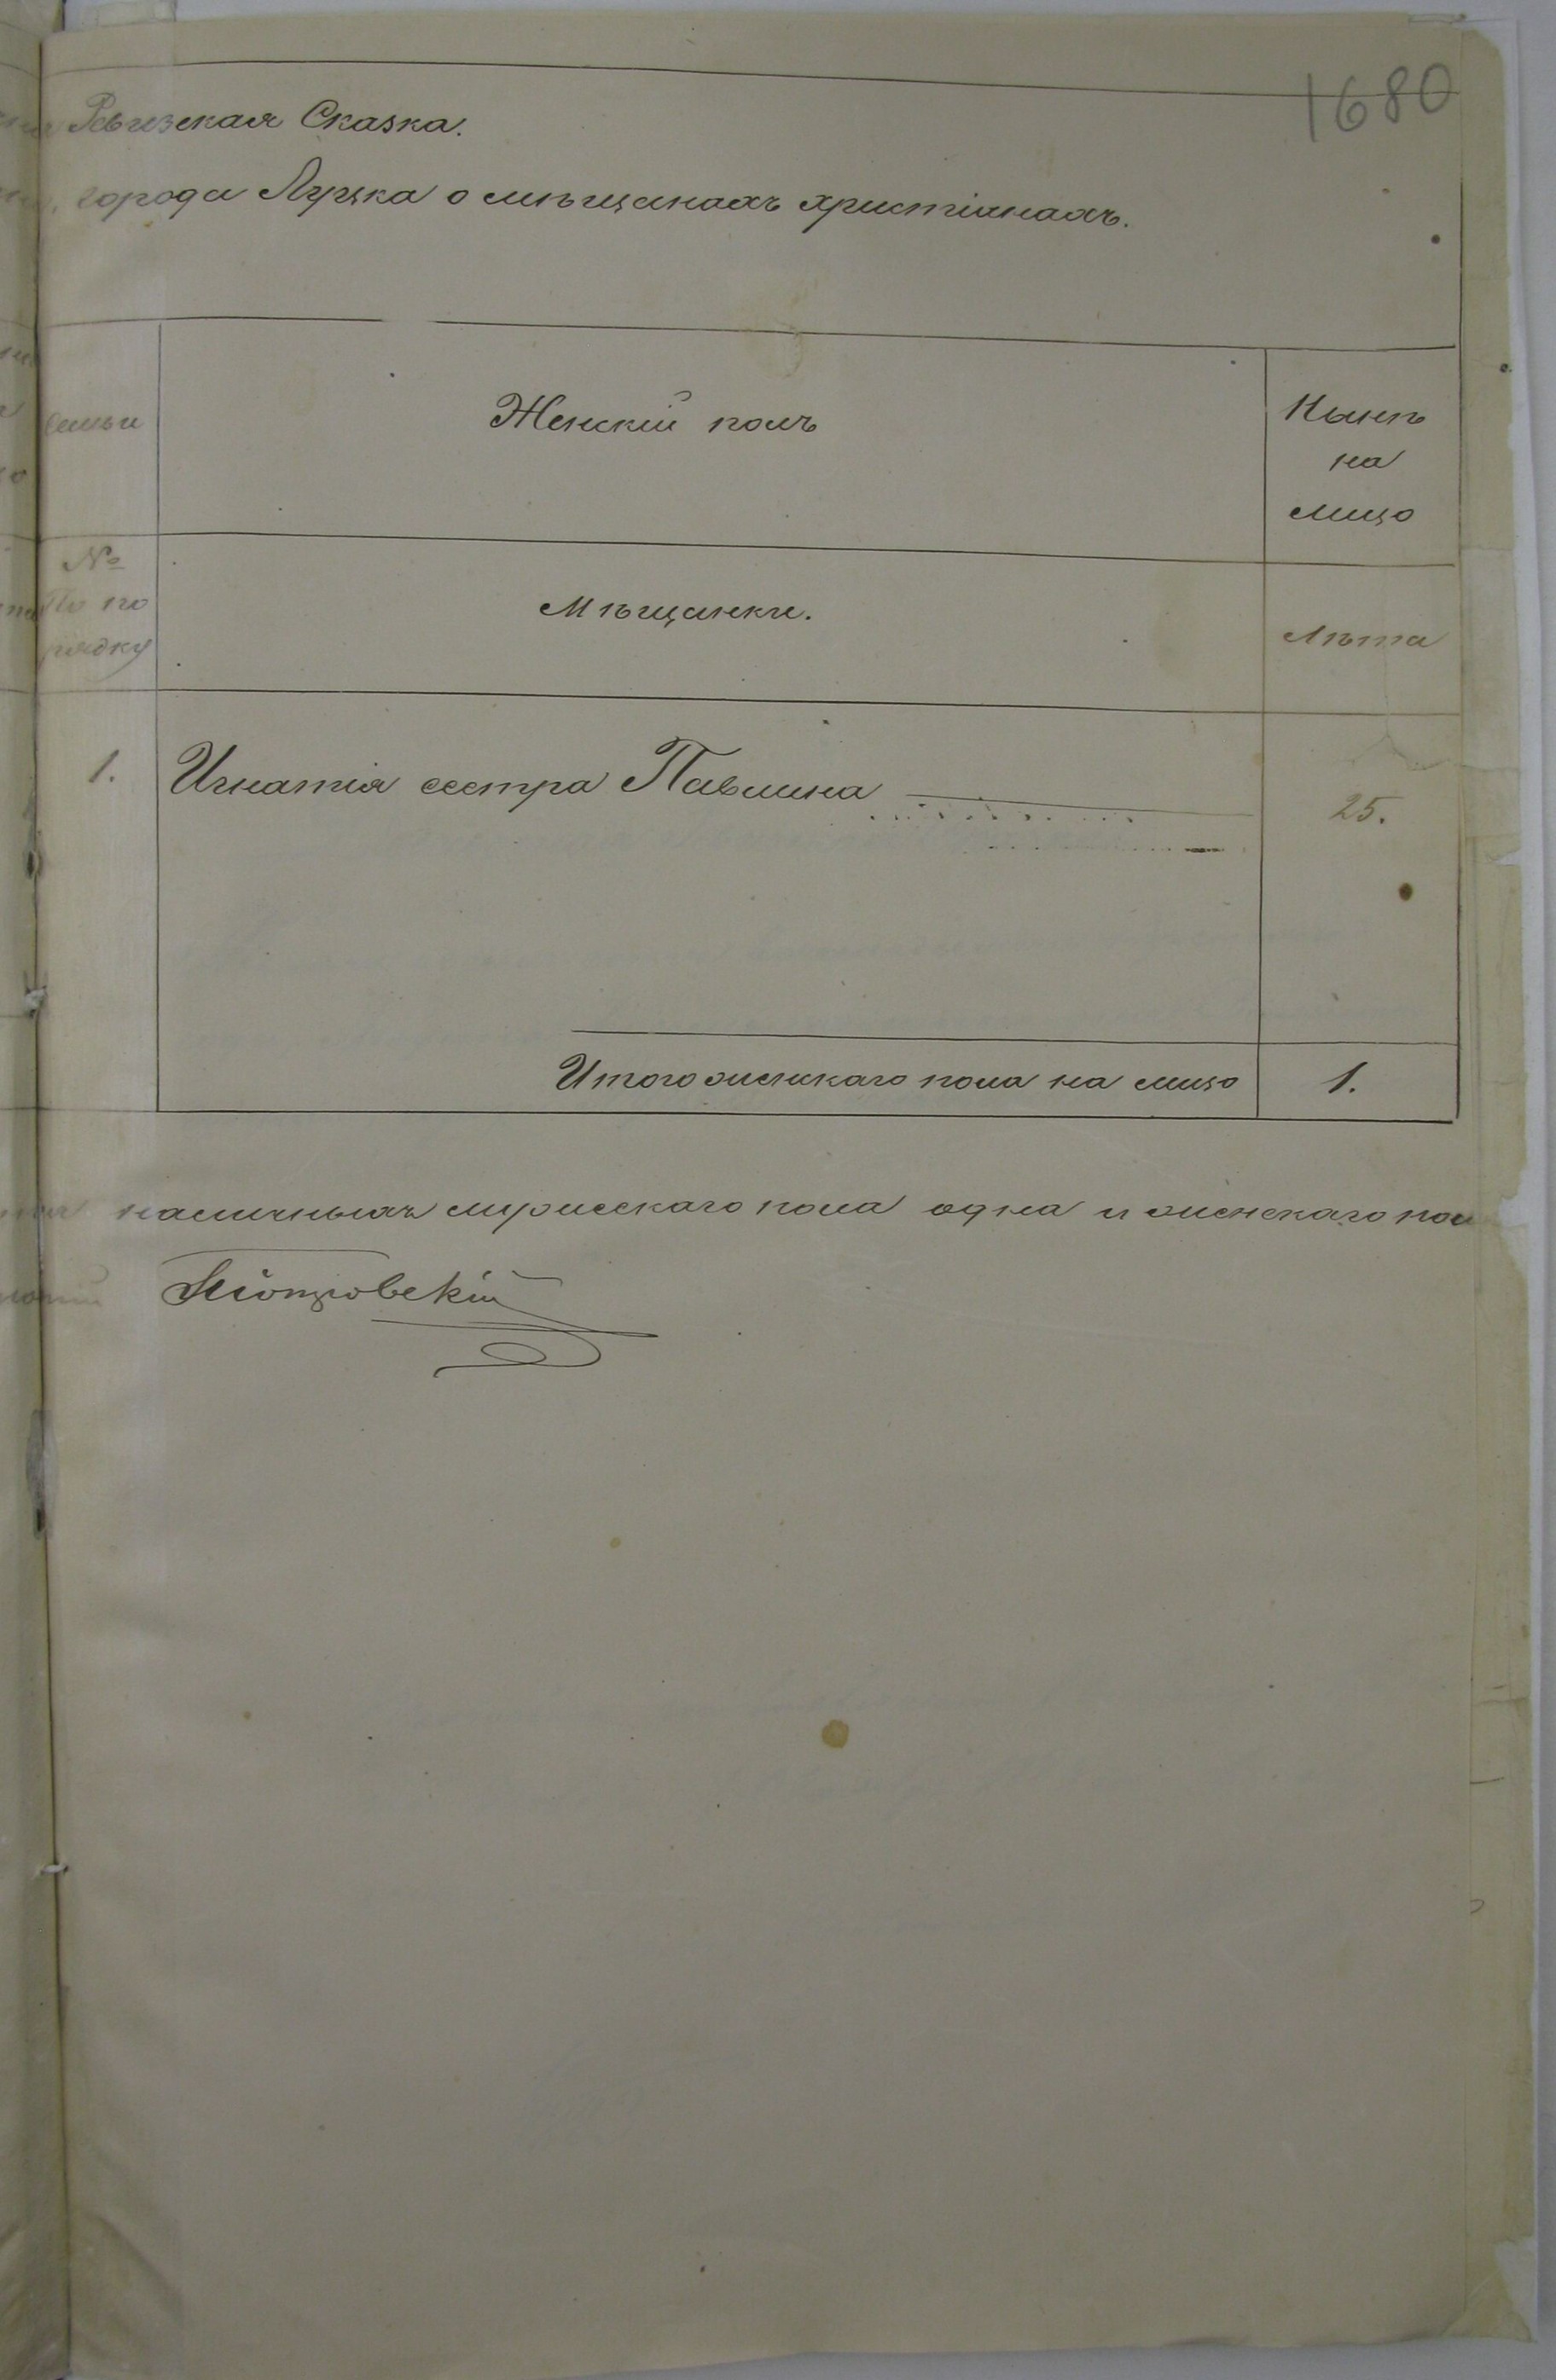 1680
Ревизская Сказка.
города Луцка о мѣщанахъ христіанахъ.
семьи
Женскій полъ
Нынѣ
на
лицо
№
По по
рядку
Мѣщанки.
Лѣта
1.
Игнатія сестра Павлина
25.
Итого женскаго пола на лицо
1.
наличныхъ мужескаго пола одна и женскаго пол